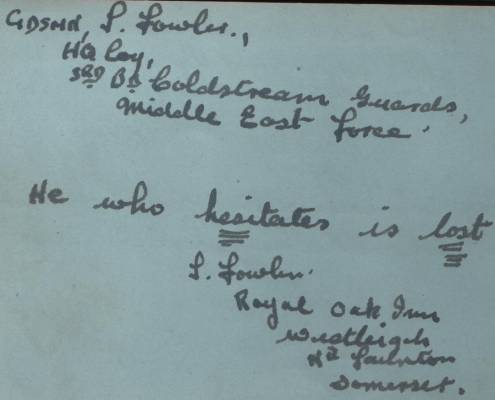 GDSMN, L. Fowler.,
HQ Coy,
3RD Bn Coldstream Guards,
Middle East Force.
He who hesitates is lost
L. Fowler.
Royal Oak Inn
Westleigh
Nr Taunton
Somerset.